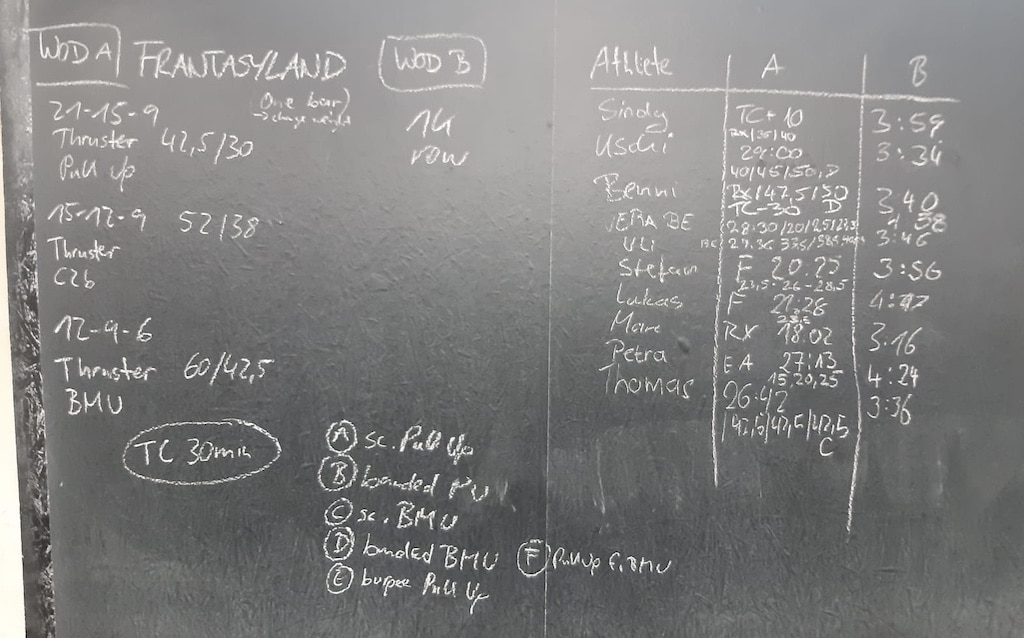 WOD A FRANTASYLAND
(One bar)
→ change weight
21-15-9
Thruster 42,5/30
Pull up
15-12-9 52/38
Thruster
C2b
12-9-6
Thruster 60/42,5
BMU
TC 30min
WOD B
1k
row
A sc. Pull Up
B banded PU
C sc. BMU
D banded BMU
E burpee Pull Up
F Pull Up f. BMU
Athlete A B
Sindy TC+10 3:59
RX/35/40
Uschi 29:00 3:34
40/45/50, D
Benni RX/47,5/50 3,40
TC-30 D
VERA BE 28:30/20/25/27,5
Uli 27:36 3:46
Stefan F 20:25 3:56
23,5-26-28,5
Lukas F 21:28
Marc RX 18:02 3:16
Petra EA 27:13 4:24
15,20,25
Thomas 26:42 3:36
/42,5/42,5/42,5
C